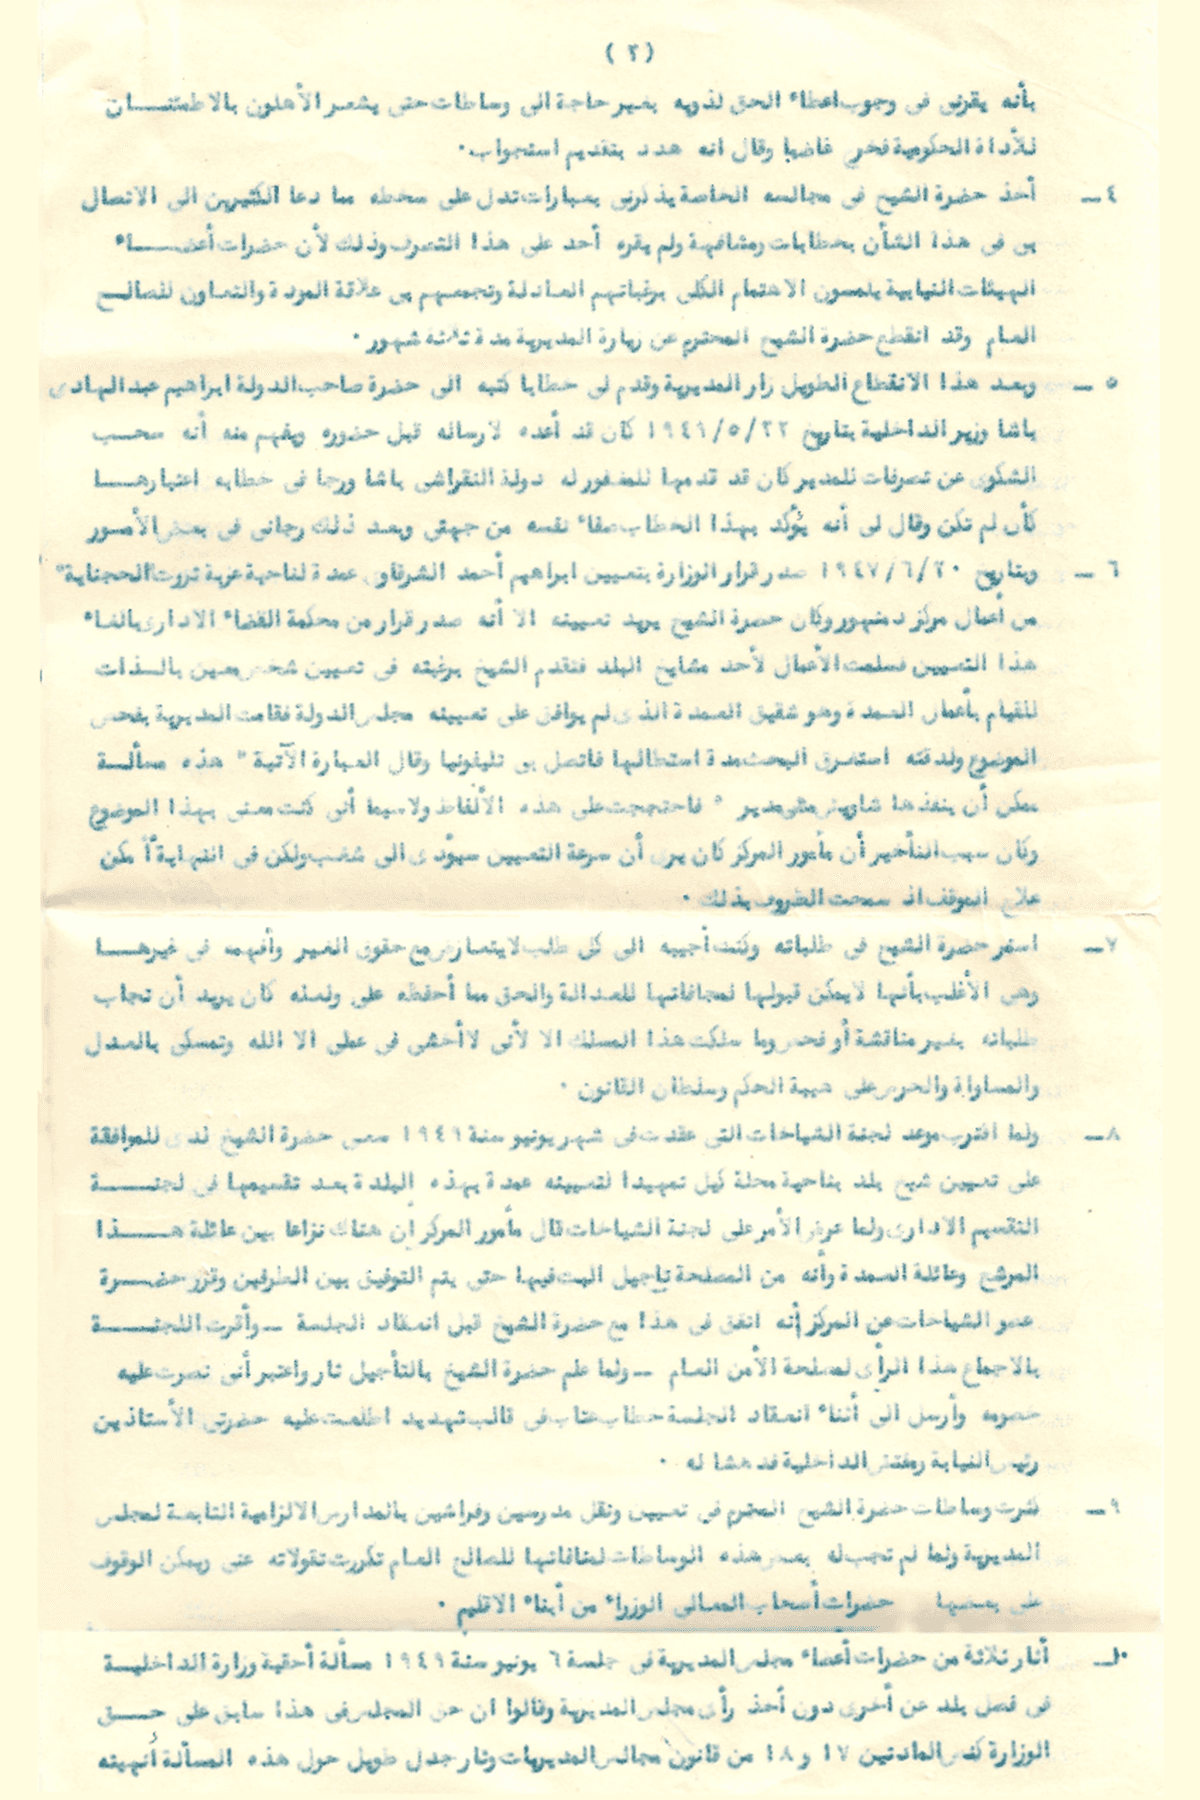 (٢)
بأنه يقرنى فى وجوب اعطاء الحق لذويه بغير حاجة الى وساطات حتى يشعر الأهلون بالاطمئنان
للأداة الحكومية فخرج غاضبا وقال انه هدد بتقديم استجواب.
٤ـ أخذ حضرة الشيخ فى مجالسه الخاصة يذكرنى بعبارات تدل على سخطه مما دعا الكثيرين الى الاتصال
بى فى هذا الشأن بخطابات ومشافهة ولم يقره أحد على هذا التصرف وذلك لأن حضرات أعضاء
الهيئات النيابية يلمسون الاهتمام الكلى برغباتهم العادلة وتجمعهم بى علاقة المودة والتعاون للصالح
العام وقد انقطع حضرة الشيخ المحترم عن زيارة المديرية مدة ثلاثة شهور.
٥ـ وبعد هذا الانقطاع الطويل زار المديرية وقدم لى خطابا كتبه الى حضرة صاحب الدولة ابراهيم عبد الهادى
باشا وزير الداخلية بتاريخ ١٩٤٩/٥/٢٢ كان قد أعده لارساله قبل حضوره ويفهم منه أنه سحب
الشكوى عن تصرفات للمدير كان قد قدمها للمغفور له دولة النقراشى باشا ورجا فى خطابه اعتبارها
كأن لم تكن وقال لى أنه يؤكد بهذا الخطاب صفاء نفسه من جهتى وبعد ذلك رجانى فى بعض الأمور
٦ـ وبتاريخ ١٩٤٧/٦/٢٠ صدر قرار الوزارة بتعيين ابراهيم أحمد الشرقاوى عمدة لناحية عزبة ثروت "الحجناية"
من أعمال مركز دمنهور وكان حضرة الشيخ يريد تعيينه الا أنه صدر قرار من محكمة القضاء الادارى بالغاء
هذا التعيين فسلمت الأعمال لأحد مشايخ البلد فتقدم الشيخ برغبته فى تعيين شخص معين بالذات
للقيام بأعمال العمدة وهو شقيق العمدة الذى لم يوافق على تعيينه مجلس الدولة فقامت المديرية بفحص
الموضوع ولدقته استغرق البحث مدة استطالها فاتصل بى تليفونيا وقال العبارة الآتية " هذه مسألة
يمكن أن ينفذها شاويش مش مدير " فاحتججت على هذه الألفاظ ولاسيما أنى كنت معنى بهذا الموضوع
وكان سبب التأخير أن مأمور المركز كان يرى أن سرعة التعيين سيؤدى الى شغب ولكن فى النهاية أمكن
علاج الموقف اذ سمحت الظروف بذلك.
٧ـ استمر حضرة الشيخ فى طلباته وكنت أجيبه الى كل طلب لا يتعارض مع حقوق الغير وأفهمه فى غيرها
وهى الأغلب بأنها لا يمكن قبولها لمجافاتها للعدالة والحق مما أحفظه على ولعله كان يريد أن تجاب
طلباته بغير مناقشة أو فحص وما سلكت هذا المسلك الا لأنى لا أخشى فى عملى الا الله وتمسكى بالعدل
والمساواة والحرص على هيبة الحكم وسلطان القانون.
٨ـ ولما اقترب موعد لجنة الشياخات التى عقدت فى شهر يونيو سنة ١٩٤٩ سعى حضرة الشيخ لدى للموافقة
على تعيين شيخ بلد بناحية محلة كيل تمهيدا لتعيينه عمدة بهذه البلدة بعد تقسيمها فى لجنة
التقسيم الادارى ولما عرض الأمر على لجنة الشياخات قال مأمور المركز ان هناك نزاعا بين عائلة هذا
المرشح وعائلة العمدة وأنه من المصلحة تأجيل البت فيها حتى يتم التوفيق بين الطرفين وقرر حضرة
عضو الشياخات عن المركز أنه اتفق فى هذا مع حضرة الشيخ قبل انعقاد الجلسة ـ وأقرت اللجنة
بالاجماع هذا الرأى لمصلحة الأمن العام ـ ولما علم حضرة الشيخ بالتأجيل ثار واعتبر أننى نصرت عليه
خصومه وأرسل الى أثناء انعقاد الجلسة خطاب عتاب فى قالب تهديد اطلعت عليه حضرتى الأستاذين
رئيس النيابة ومفتش الداخلية فدهشا له.
٩ـ كثرت وساطات حضرة الشيخ المحترم فى تعيين ونقل مدرسين وفراشين بالمدارس الالزامية التابعة لمجلس
المديرية ولما لم تجب له بعض هذه الوساطات لمنافاتها للصالح العام تكررت تقولاته عنى ويمكن الوقوف
على بعضها حضرات أصحاب المعالى الوزراء من أبناء الاقليم.
١٠ـ أثار ثلاثة من حضرات أعضاء مجلس المديرية فى جلسة ٦ يونيو سنة ١٩٤٩ مسألة أحقية وزارة الداخلية
فى فصل بلد عن أخرى دون أخذ رأى مجلس المديرية وقالوا ان حق المجلس فى هذا سابق على حق
الوزارة كنص المادتين ١٧ و ١٨ من قانون مجالس المديريات وثار جدل طويل حول هذه المسألة أنهيته